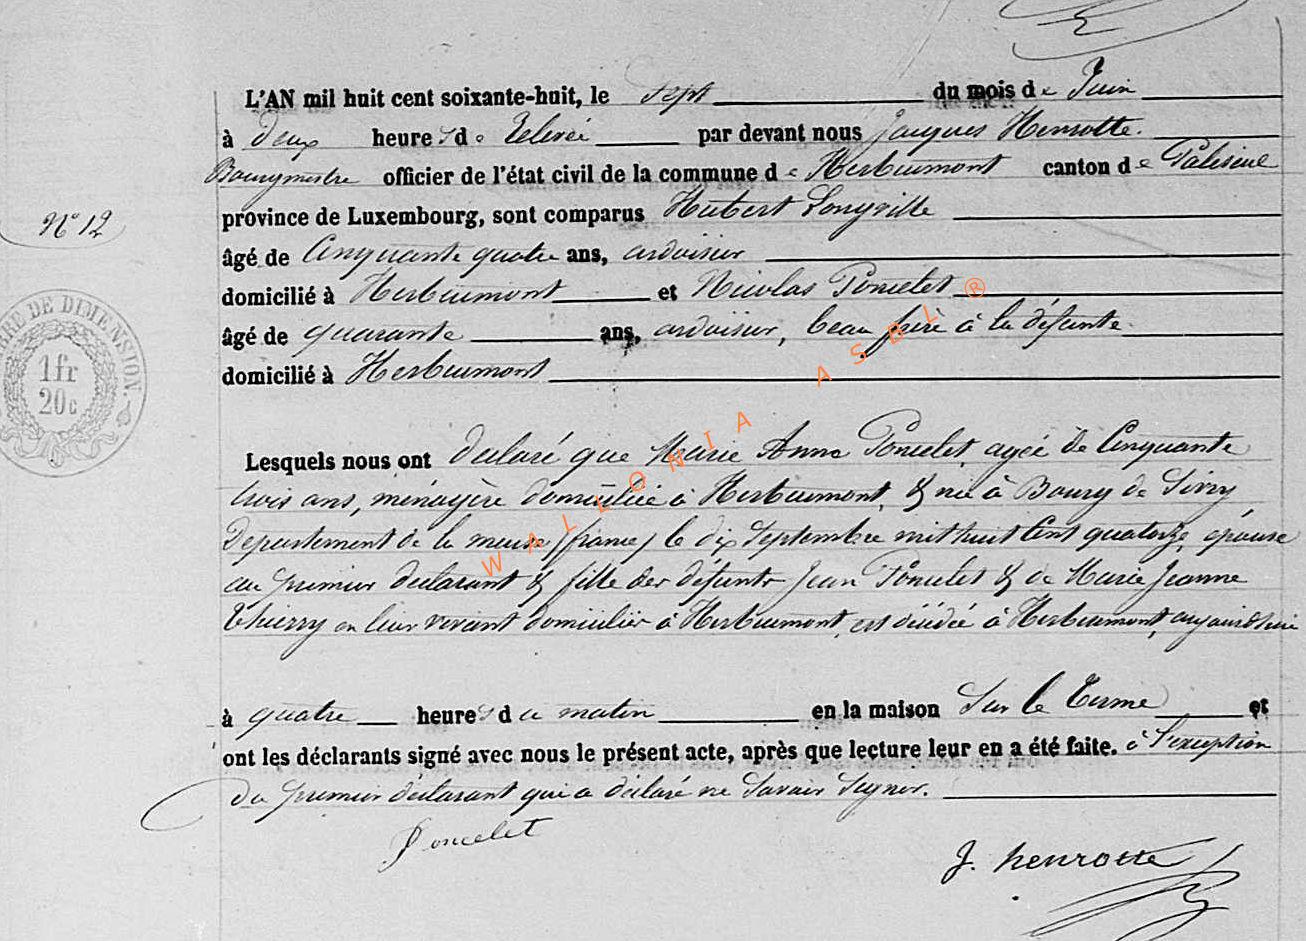 L'AN mil huit cent soixante-huit, le Sept du mois de Juin
à deux heures de Relevée par devant nous Jacques Henrotte.
Bourgmestre officier de l'état civil de la commune de Herbeumont canton de Paliseul
N° 12
province de Luxembourg, sont comparus Hubert Longville
âgé de Cinquante quatre ans, ardoisier
domicilié à Herbeumont et Nicolas Poncelet
âgé de quarante ans, ardoisier, beau frère à la défunte
domicilié à Herbeumont
TIMBRE DE DIMENSION.
1fr
20c
Lesquels nous ont déclaré que Marie Anne Poncelet, agée de Cinquante
trois ans, ménagère domiciliée à Herbeumont, & née à Bourg de Sivry
Departement de la meuse (france) le dix Septembre mil huit Cent quatorze, épouse
au premier déclarant & fille des défunts Jean Poncelet & de Marie Jeanne
Thierry en leur vivant domiciliés à Herbeumont, est décédée à Herbeumont, aujourd'hui
à quatre heures du matin en la maison Sur le Terme et
ont les déclarants signé avec nous le présent acte, après que lecture leur en a été faite. à l'exception
du premier déclarant qui a déclaré ne Savoir Signer.
Poncelet
J. henrotte
WALLONIA ASBL ®